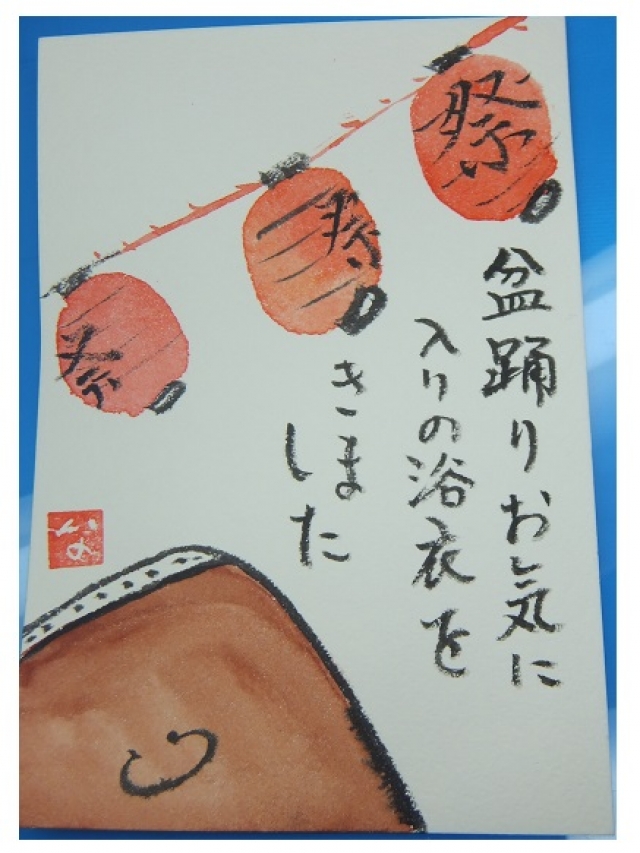 祭
祭
祭
盆踊りお気に
入りの浴衣を
きま
した